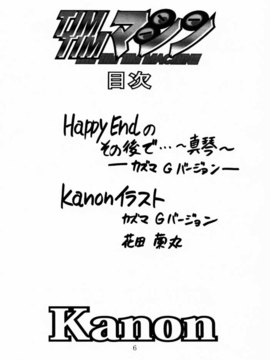 TIM TIMマシン
TIM TIM MACHINE
目次
Happy Endの
その後で…～真琴～
ーカズマ Gバージョンー
Kanonイラスト
カズマ Gバージョン
花田 蘭丸
Kanon
6